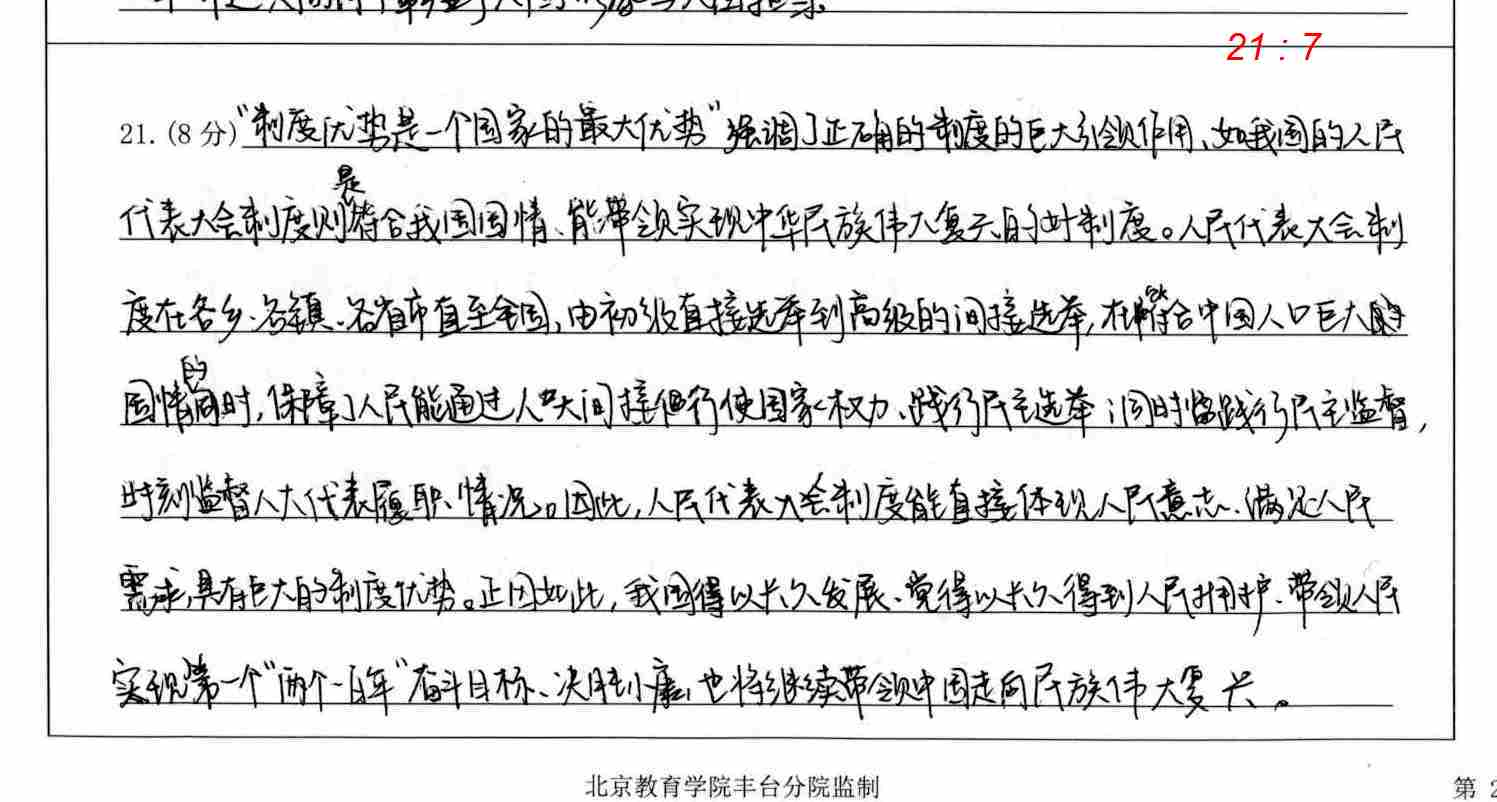 21 : 7
21. (8 分) "制度优势是一个国家的最大优势"强调了正确的制度的巨大引领作用、如我国的人民
代表大会制度则是符合我国国情、能带领实现中华民族伟大复兴的好制度。人民代表大会制
度在各乡、各镇、各省市直至全国,由初级直接选举到高级的间接选举,在符合中国人口巨大
国情的同时,保障了人民能通过人大间接行使国家权力、践行民主选举;同时践行民主监督,
时刻监督人大代表履职情况。因此,人民代表大会制度能直接体现人民意志、满足人民
需求,具有巨大的制度优势。正因如此,我国得以长久发展、党得以长久得到人民拥护、带领人民
实现第一个"两个一百年"奋斗目标、决胜小康,也将继续带领中国走向民族伟大复兴。
北京教育学院丰台分院监制
第 2